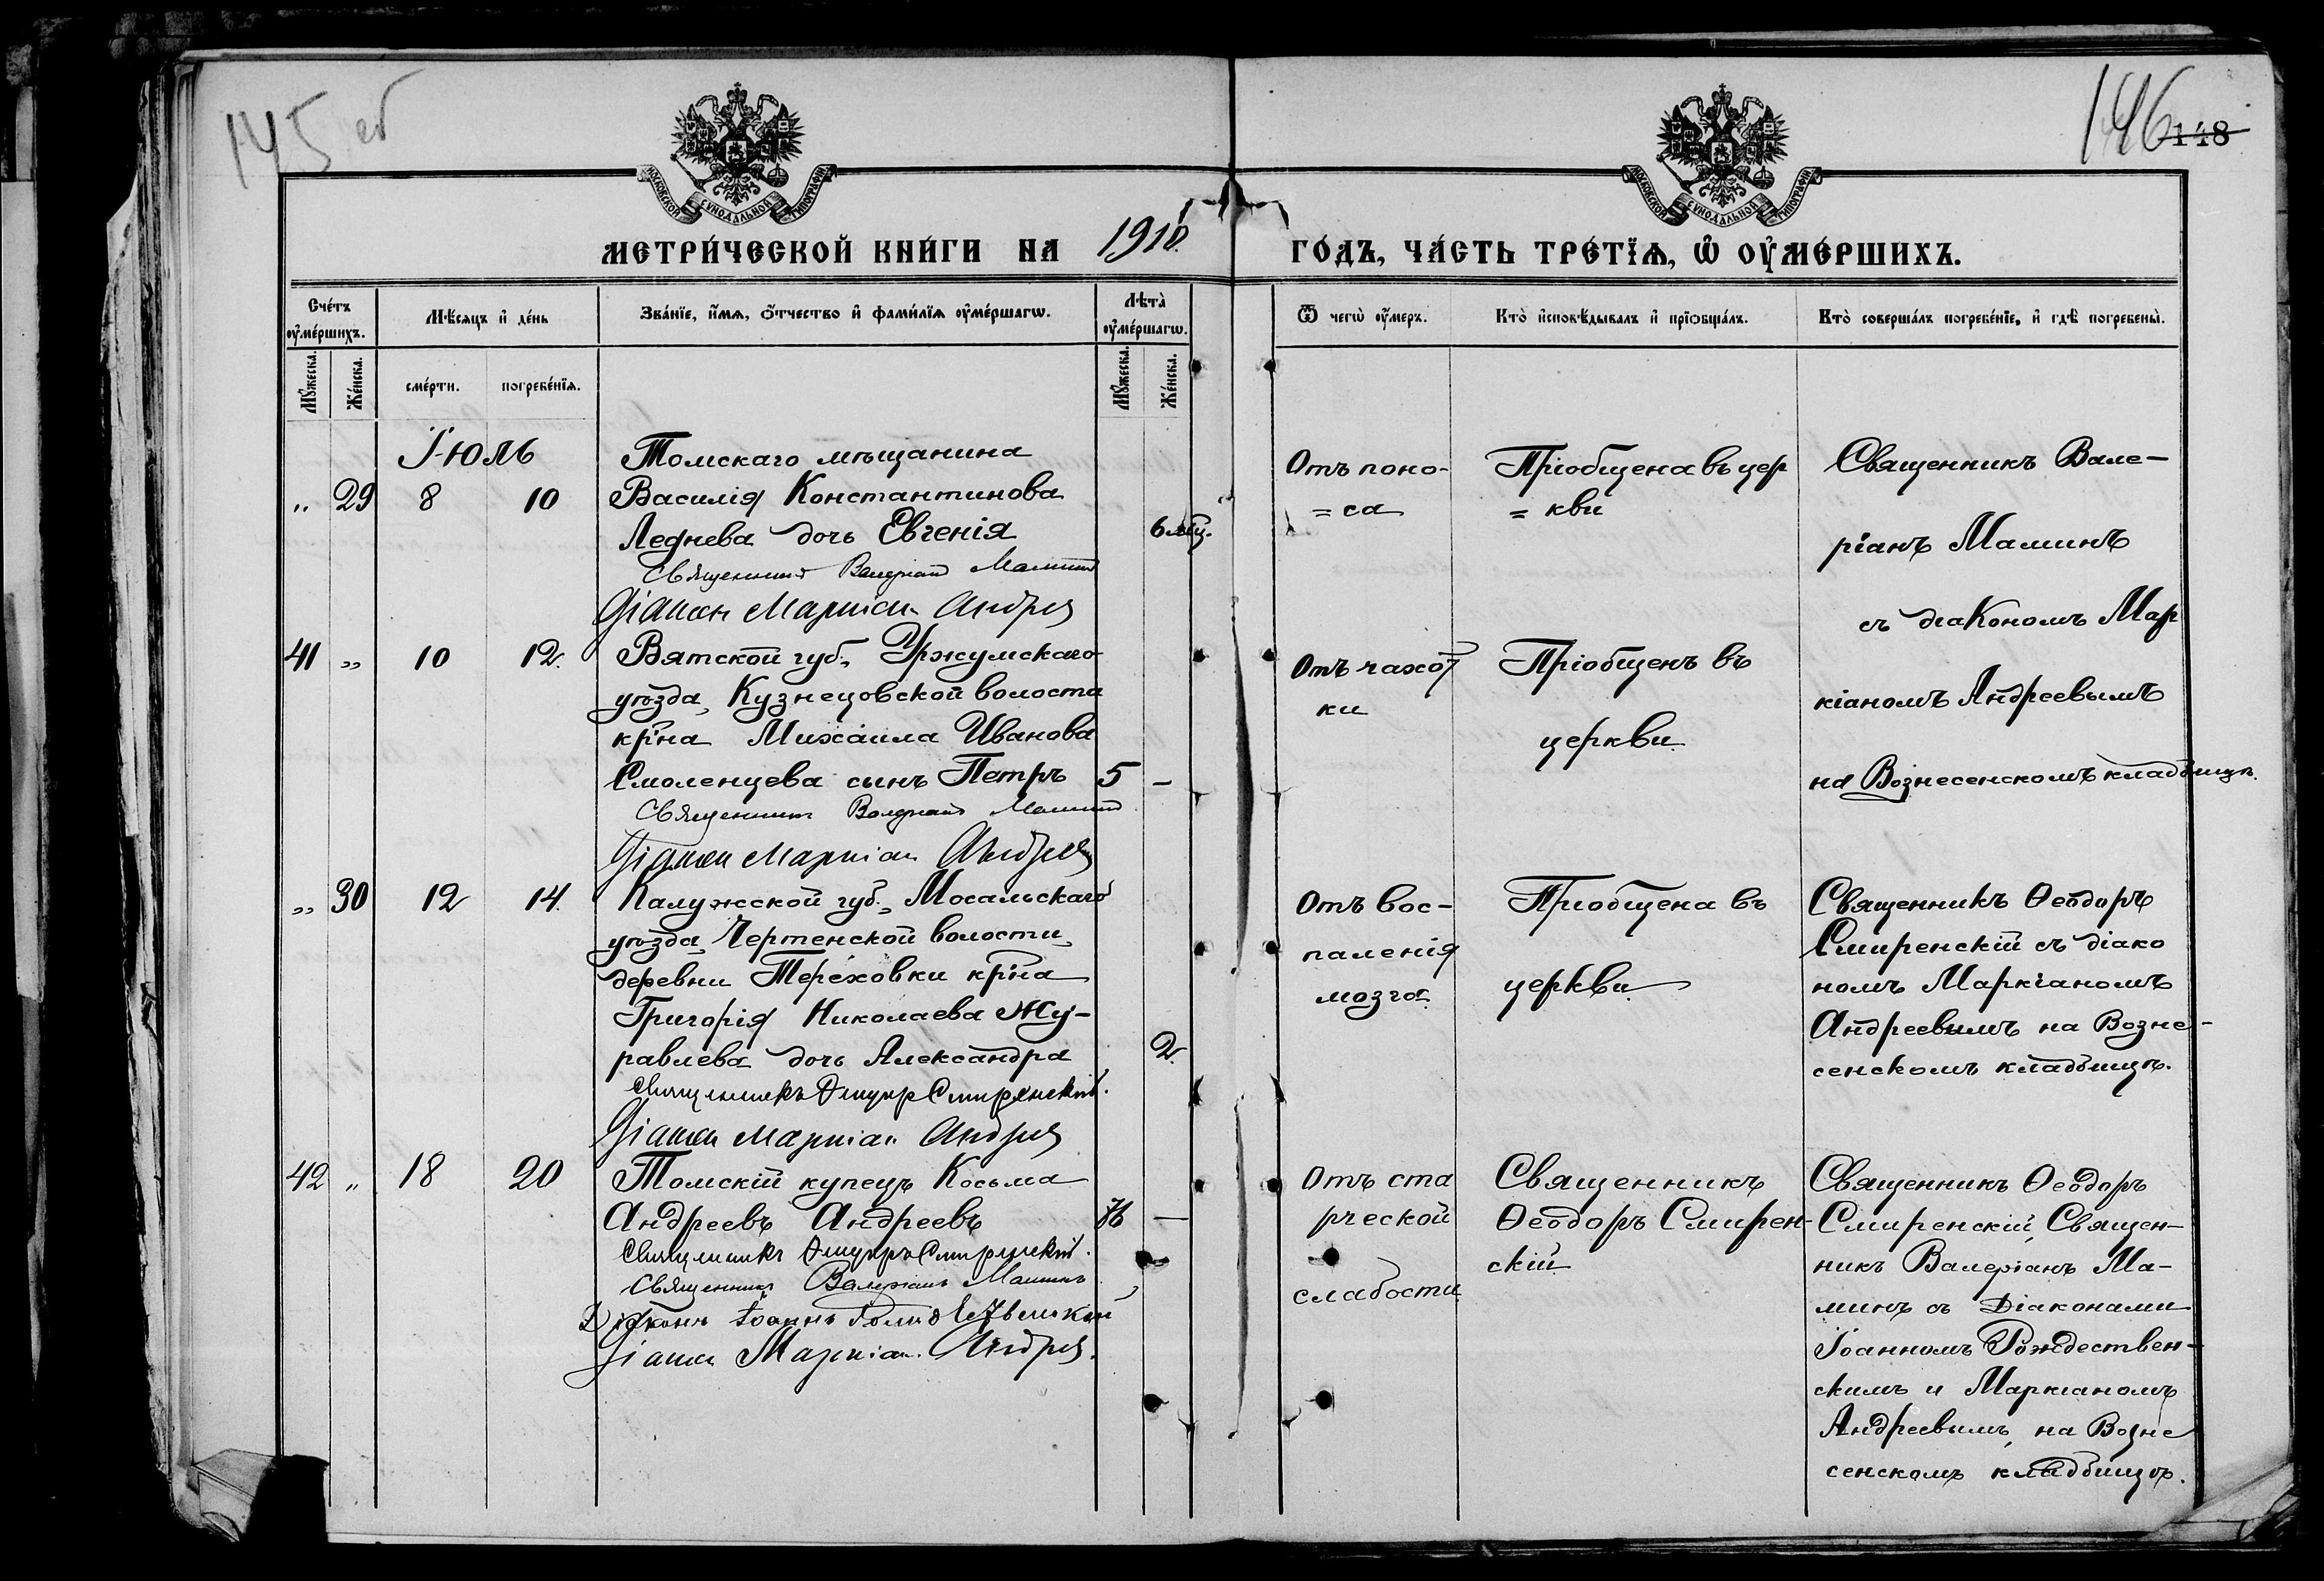 145 об
146
148
МОСКОВСКОЙ СѴНОДАЛЬНОЙ ТИПОГРАФІИ
МОСКОВСКОЙ СѴНОДАЛЬНОЙ ТИПОГРАФІИ
МЕТРИ́ЧЕСКОЙ КНИ́ГИ НА 1910. ГО́ДЪ, ЧА́СТЬ ТРЕ́ТЇѦ, Ѡ҆ ОУ҆МЕ́РШИХЪ.
Сче́тъ оу҆ме́ршихъ.
Мѣ́сяцъ и҆ де́нь
Зва́нїе, и҆́мѧ, ѻ҆́тчество и҆ фами́лїѧ оу҆ме́ршагѡ.
Лѣта̀ оу҆ме́ршагѡ.
Ѿ чегѡ̀ оу҆́меръ.
Кто̀ и҆сповѣ́дывалъ и҆ прїѻбща́лъ.
Кто̀ соверша́лъ погребе́нїе, и҆ гдѣ̀ погребены̀.
Мꙋ́жеска.
Же́нска.
сме́рти.
погребе́нїѧ.
Мꙋ́жеска.
Же́нска.
Іюль
„ 29 8 10
Томскаго мѣщанина
Василія Константинова
Леднева дочь Евгенія
6 мѣц.
Священникъ Валеріанъ Маминъ
Діакон Маркіан Андреев
Отъ поно-
= са
Пріобщена въ цер
= кви
Священникъ Вале-
ріанъ Маминъ
съ діакономъ Мар
кіаномъ Андреевымъ
на Вознесенскомъ кладбищѣ.
41 „ 10 12.
Вятской губ., Уржумскаго
уѣзда, Кузнецовской волости
кр̃на Михаила Иванова
Смоленцева сынъ Петръ 5 –
Священникъ Валеріанъ Маминъ
Діакон Маркіан Андреев
Отъ чахот
ки
Пріобщенъ въ
церкви
„ 30 12 14.
Калужской губ., Мосальскаго
уѣзда, Чертенской волости,
деревни Тереховки кр̃на
Григорія Николаева Жу-
равлева дочь Александра
2.
Священникъ Ѳеодоръ Смиренскій.
Діакон Маркіан Андреев
Отъ вос-
паленія
мозга
Пріобщена въ
церкви.
Священникъ Ѳеодоръ
Смиренскій съ діако
номъ Маркіаномъ
Андреевымъ на Возне-
сенскомъ кладбищѣ.
42 „ 18 20
Томскій купецъ Косьма
Андреевъ Андреевъ 76 –
Священникъ Ѳеодоръ Смиренскій.
Священникъ Валеріанъ Маминъ
Діаконъ Іоаннъ Рождественскій
Діакон Маркіан Андреев.
Отъ ста
рческой
слабости.
Священникъ
Ѳеодоръ Смирен-
скій
Священникъ Ѳеодоръ
Смиренскій, Священ-
никъ Валеріанъ Ма-
минъ съ Діаконами
Іоанномъ Рождествен-
скимъ и Маркіаномъ
Андреевымъ, на Возне
сенскомъ кладбищѣ.